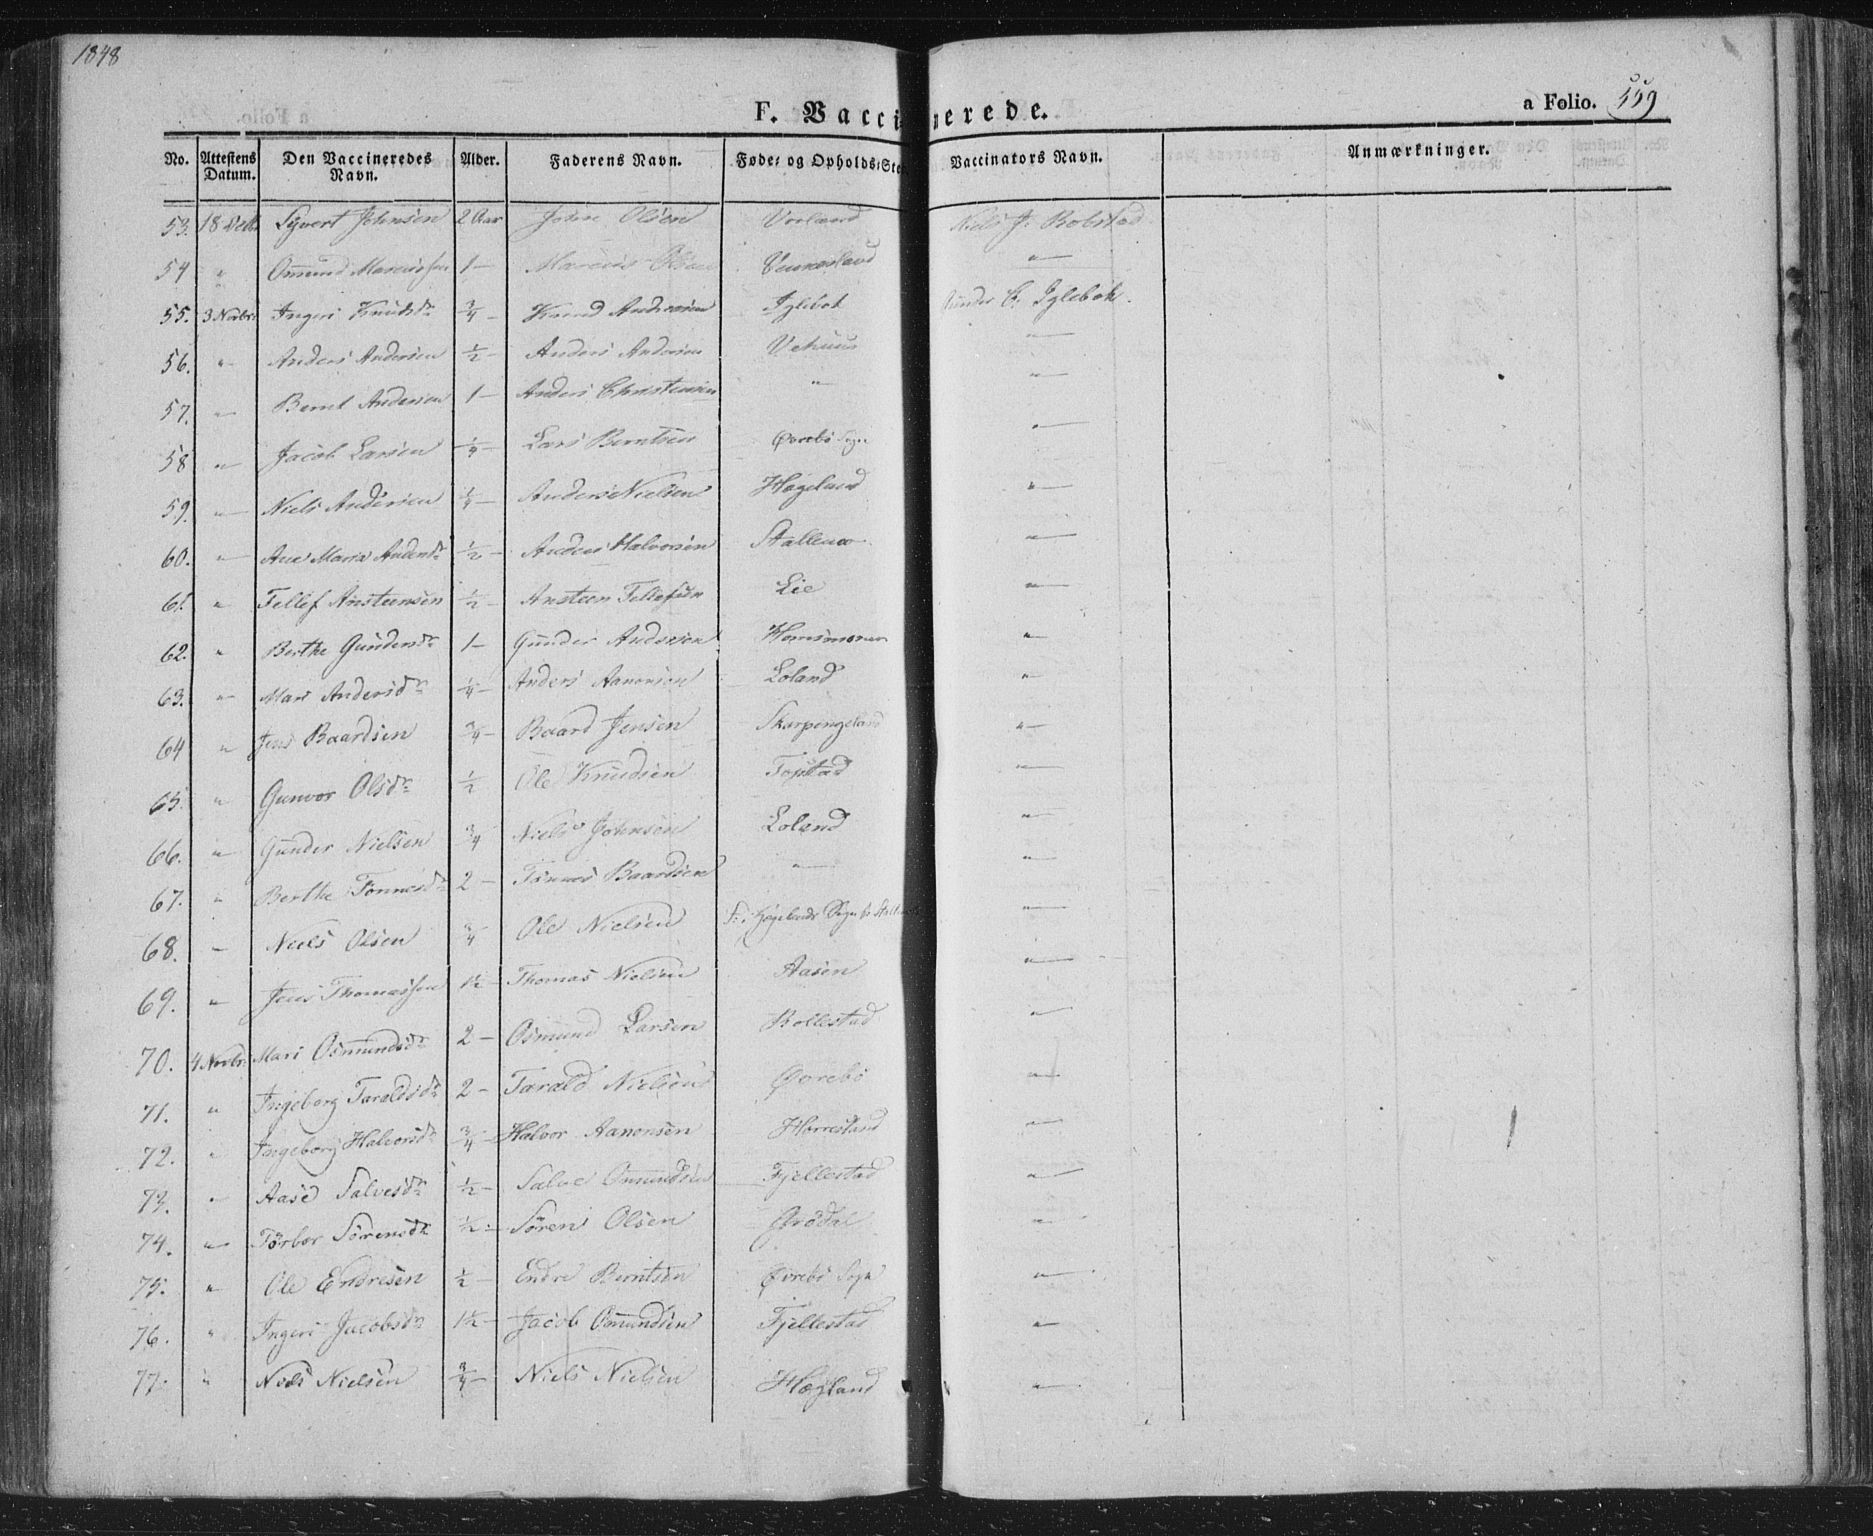 1848
F. Vaccinerede.
a Folio. 559
No. Attestens Datum. Den Vaccineredes Navn. Alder. Faderens Navn. Føde- og Opholds-Sted Vaccinators Navn. Anmærkninger.
53. 18 Syvert Johnsen 2 Aar John Olsen Vorland Niels J. Robstad
54 " Omund Marcussen 1 - Marcus Olsen Vennesland "
55. 3 Novbr: Ingeri Knudsdr 3/4 - Knud Andersen Iglebok Gunder C. Iglebok.
56. " Anders Andersen 1/2 - Anders Andersen Vehuus "
57. " Bernt Andersen 1 - Anders Christensen " "
58 " Jacob Larsen 1/4 - Lars Berntsen Øvrebö Sogn "
59. " Niels Andersen 1/4 - Anders Nielsen Hægeland "
60. " Ane Maria Andersdr 1/2 - Anders Halvorsen Stallemo "
61. " Tellef Ansteensen 1/2 - Ansteen Tellefsen Lie "
62. " Berthe Gundersdr 1 - Gunder Andersen Homsmoren "
63. " Mari Andersdr 1/4 - Anders Aanonsen Loland "
64 " Jens Baardsen 3/4 - Baard Jensen Skarpengeland "
65. " Gunvor Olsdr 1/2 Ole Knudsen Topstad "
66. " Gunder Nielsen 3/4 Niels Johnsen Loland "
67. " Berthe Tönnesdr 2 - Tönnes Baardsen " "
68. " Niels Olsen 3/4 Ole Nielsen F: Hægelands Sogn "
69. " Jens Thomassen 1 1/2 - Thomas Nielsen Aasen "
70. 4 Novbr: Mari Osmundsdr 2 - Osmund Larsen Bollestad "
71. " Ingeborg Taraldsdr 2 - Tarald Nielsen Øvrebö "
72. " Ingeborg Halvorsdr 3/4 - Halvor Aanonsen Horrisland "
73. " Aase Salvesdr 1/2 - Salve Omundsen Fjellestad "
74. " Torbor Sörensdr 1/2 - Sören Olsen Grödal "
75. " Ole Endresen 1/2 - Endre Berntsen Øvrebö Sogn "
76. " Ingeri Jacobsdr 1 1/2 - Jacob Omundsen Fjellestad "
77. " Niels Nielsen 3/4 - Niels Nielsen Hægland "